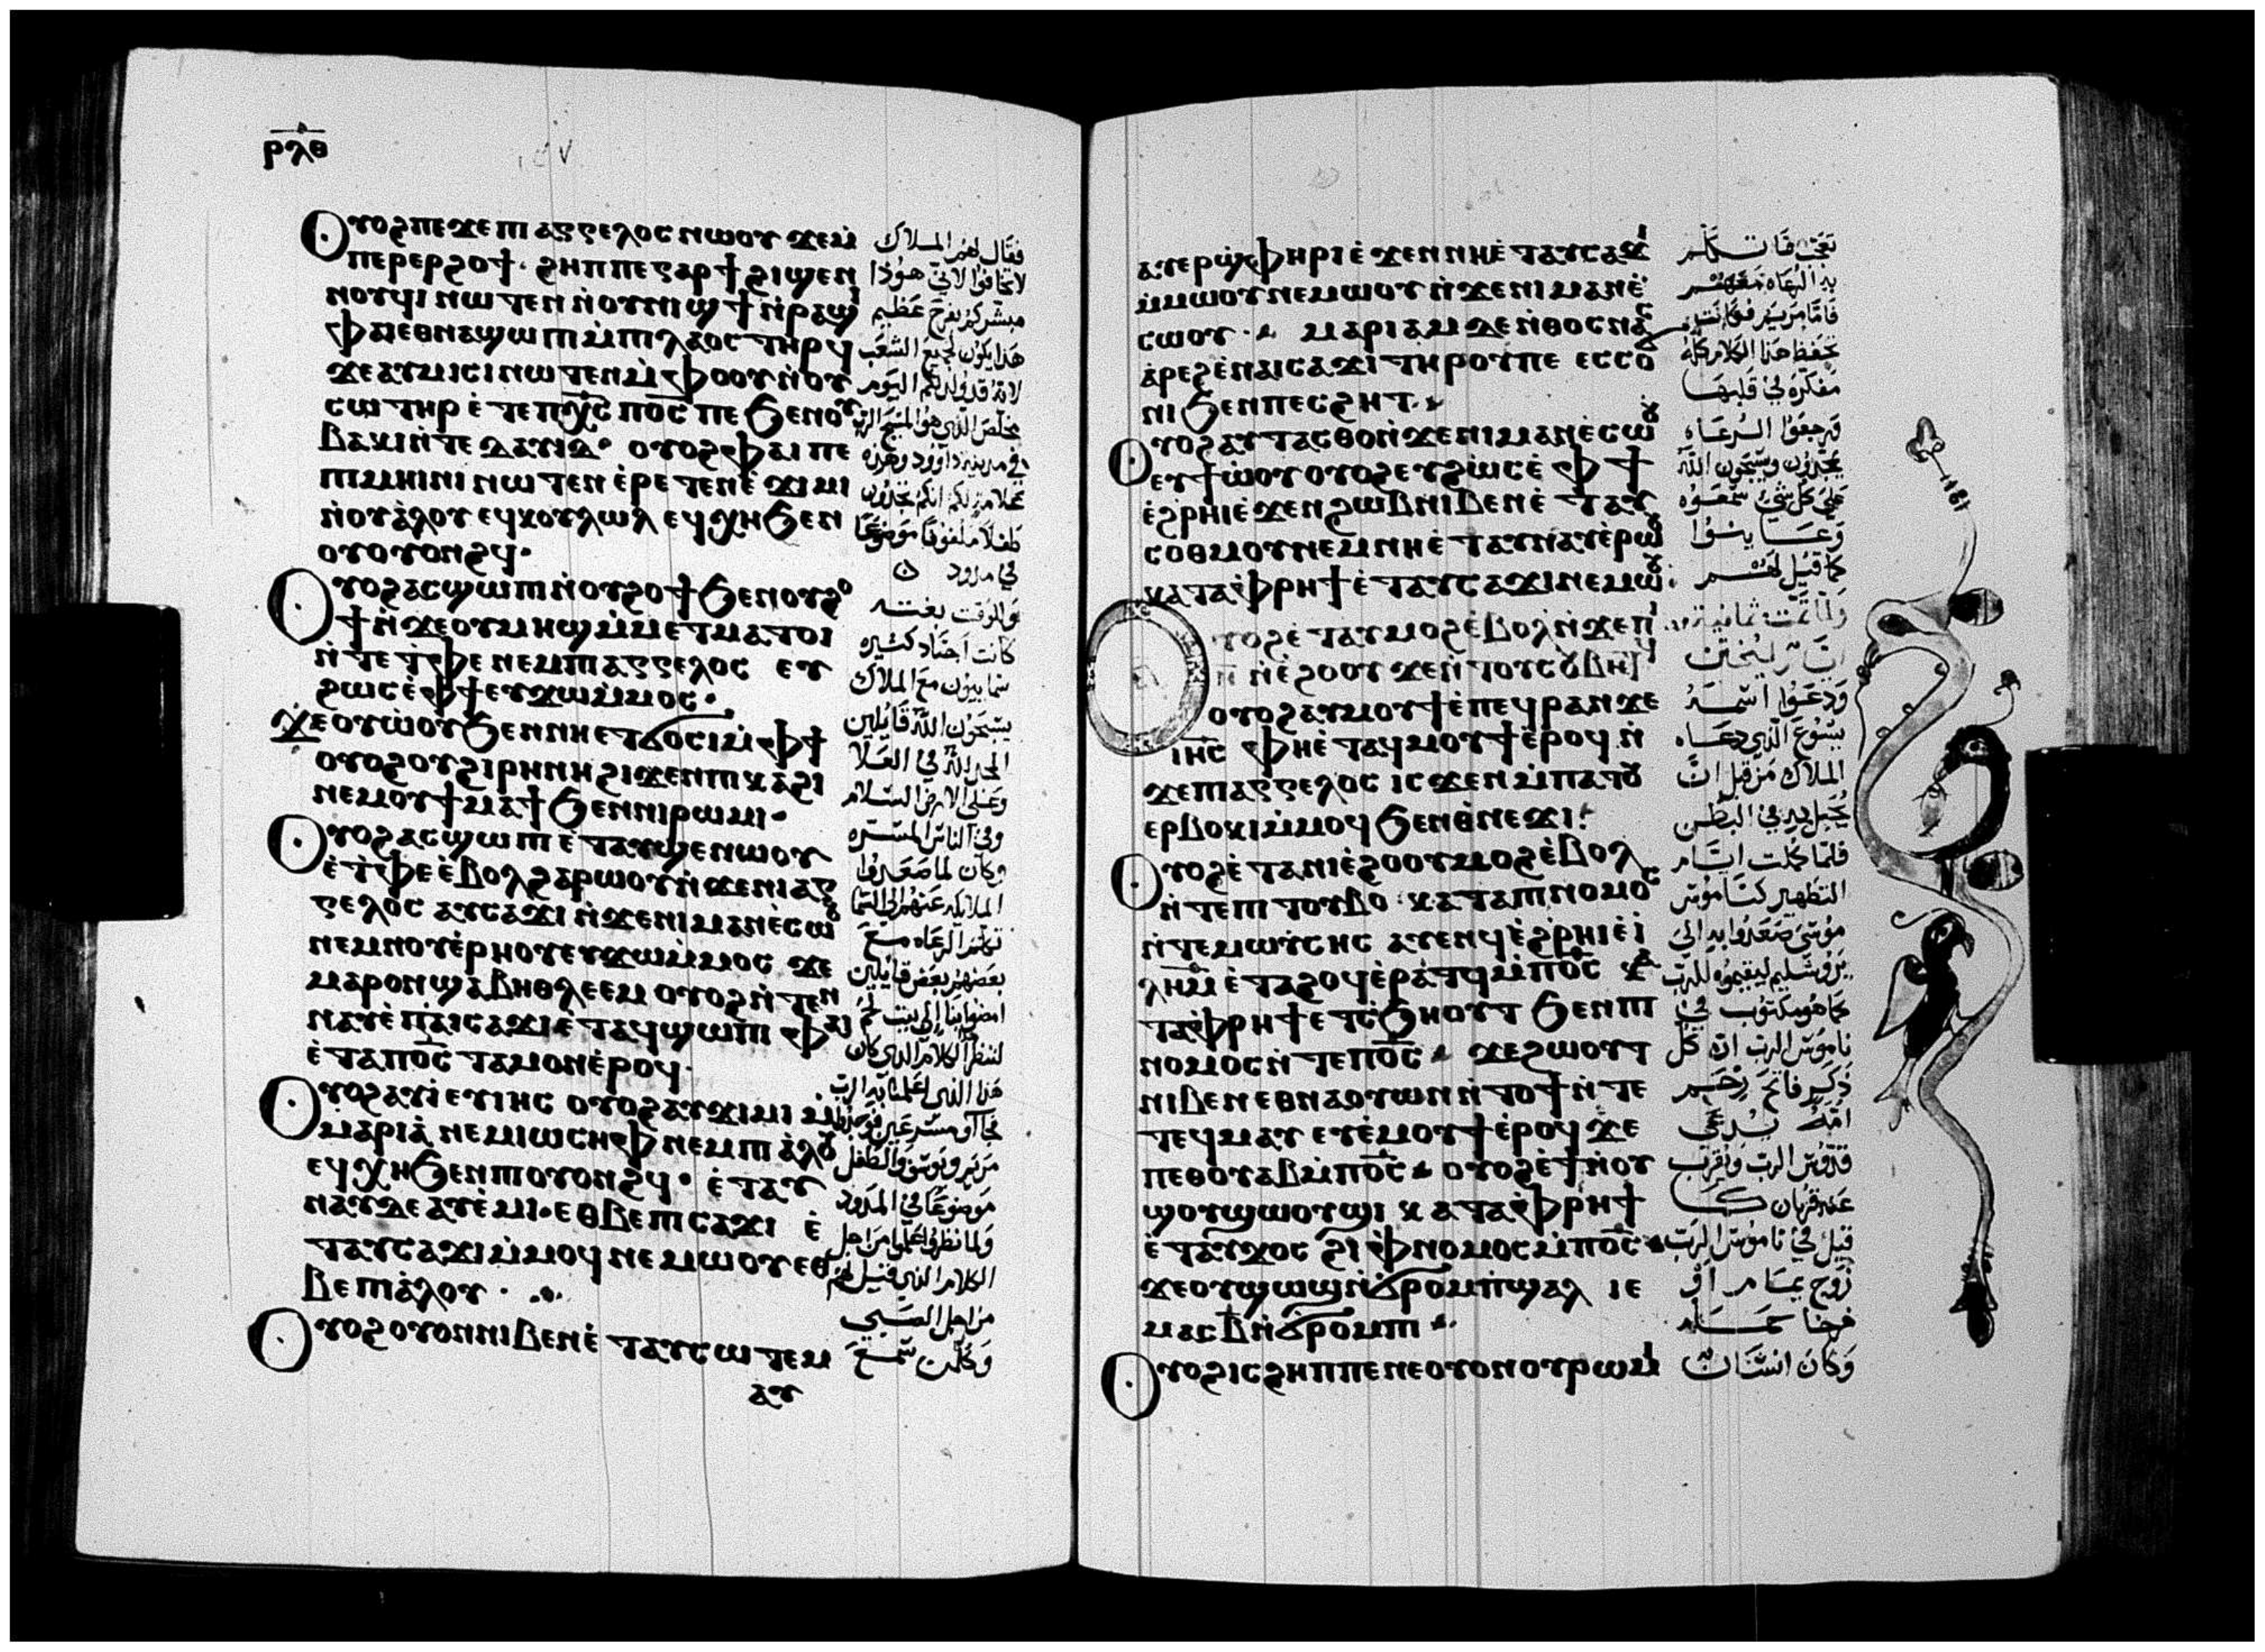 ⲣⲗⲑ
١٥٧
Ⲟⲩⲟϩ ⲡⲉϫⲉ ⲡⲓⲁⲅⲅⲉⲗⲟⲥ ⲛⲱⲟⲩ ϫⲉⲙ̀
ⲡⲉⲣⲉⲣϩⲟϯ· ϩⲏⲡⲡⲉ ⲅⲁⲣ ϯϩⲓϣⲉⲛ
ⲛⲟⲩϥⲓ ⲛⲱⲧⲉⲛ ⲛ̀ⲟⲩⲛⲓϣϯ ⲛ̀ⲣⲁϣⲓ
ⲫⲁⲓ ⲉⲑⲛⲁϣⲱⲡⲓ ⲙ̀ⲡⲓⲗⲁⲟⲥ ⲧⲏⲣϥ
ϫⲉ ⲁⲩⲙⲓⲥⲓ ⲛⲱⲧⲉⲛ ⲙ̀ⲫⲟⲟⲩ ⲛ̀ⲟⲩ
ⲥⲱⲧⲏⲣ ⲉ̀ⲧⲉ ⲡⲭ̅ⲥ̅ ⲡⲟ̅ⲥ̅ ⲡⲉ ϧⲉⲛ ⲑ
ⲃⲁⲕⲓ ⲛ̀ⲧⲉ ⲇⲁⲩⲓⲇ· ⲟⲩⲟϩ ⲫⲁⲓ ⲡⲉ
ⲡⲓⲙⲏⲓⲛⲓ ⲛⲱⲧⲉⲛ ⲉ̀ⲣⲉⲧⲉⲛⲉ̀ϫⲓⲙⲓ
ⲛ̀ⲟⲩⲁ̀ⲗⲟⲩ ⲉϥⲕⲟⲩⲗⲱⲗ ⲉϥⲭⲏ ϧⲉⲛ
ⲟⲩⲟⲩⲟⲛϩϥ·
Ⲟⲩⲟϩ ⲁⲥϣⲱⲡⲓ ⲛ̀ⲟⲩϩⲟϯ ϧⲉⲛ ⲟⲩϩⲟ
ϯ ⲛ̀ϫⲉ ⲟⲩⲙⲏϣ ⲙ̀ⲙⲉⲧⲙⲁⲧⲟⲓ
ⲛ̀ⲧⲉ ⲧ̀ⲫⲉ ⲛⲉⲙ ⲡⲓⲁⲅⲅⲉⲗⲟⲥ ⲉⲩ
ϩⲱⲥ ⲉ̀ⲫϯ ⲉⲩϫⲱ ⲙ̀ⲙⲟⲥ·
ϫⲉ ⲟⲩⲱ̀ⲟⲩ ϧⲉⲛ ⲛⲏ ⲉⲧϭⲟⲥⲓ ⲙ̀ⲫϯ
ⲟⲩⲟϩ ⲟⲩϩⲓⲣⲏⲛⲏ ϩⲓϫⲉⲛ ⲡⲓⲕⲁϩⲓ
ⲛⲉⲙ ⲟⲩϯⲙⲁϯ ϧⲉⲛ ⲛⲓⲣⲱⲙⲓ·
Ⲟⲩⲟϩ ⲁⲥϣⲱⲡⲓ ⲉ̀ⲧⲁⲩϣⲉⲛⲱⲟⲩ
ⲉ̀ⲧ̀ⲫⲉ ⲉ̀ⲃⲟⲗ ϩⲁⲣⲱⲟⲩ ⲛ̀ϫⲉ ⲛⲓⲁⲅ
ⲅⲉⲗⲟⲥ ⲁⲩⲥⲁϫⲓ ⲛ̀ϫⲉ ⲛⲓⲙⲁⲛⲉ̀ⲥⲱⲟⲩ
ⲛⲉⲙ ⲛⲟⲩⲉ̀ⲣⲏⲟⲩ ⲉⲩϫⲱ ⲙ̀ⲙⲟⲥ ϫⲉ
ⲙⲁⲣⲟⲛ ϣⲁ ⲃⲏⲑⲗⲉⲉⲙ ⲟⲩⲟϩ ⲛ̀ⲧⲉⲛ
ⲛⲁⲩ ⲉ̀ⲡⲁⲓⲥⲁϫⲓ ⲉ̀ⲧⲁϥϣⲱⲡⲓ ⲫⲁⲓ
ⲉ̀ⲧⲁ ⲡⲟ̅ⲥ̅ ⲧⲁⲙⲟⲛ ⲉ̀ⲣⲟϥ·
Ⲟⲩⲟϩ ⲁⲩⲓ̀ ⲉⲩⲓⲏⲥ ⲟⲩⲟϩ ⲁⲩϫⲓⲙⲓ ⲙ̀
ⲙⲁⲣⲓⲁ̀ ⲛⲉⲙ ⲓⲱⲥⲏⲫ ⲛⲉⲙ ⲡⲓⲁ̀ⲗⲟⲩ
ⲉϥⲭⲏ ϧⲉⲛ ⲡⲓⲟⲩⲟⲛϩϥ· ⲉ̀ⲧⲁⲩ
ⲛⲁⲩ ⲇⲉ ⲁⲩⲉ̀ⲙⲓ· ⲉⲑⲃⲉ ⲡⲓⲥⲁϫⲓ ⲉ̀
ⲧⲁⲩⲥⲁϫⲓ ⲙ̀ⲙⲟϥ ⲛⲉⲙⲱⲟⲩ ⲉⲑ
ⲃⲉ ⲡⲓⲁ̀ⲗⲟⲩ·
Ⲟⲩⲟϩ ⲟⲩⲟⲛ ⲛⲓⲃⲉⲛ ⲉ̀ⲧⲁⲩⲥⲱⲧⲉⲙ
ⲁⲩ
فقال لهم الملاك
لا تخافوا لاني هوذا
مبشركم بفرح عظيم
هذا يكون لجميع الشعب
لانه قد ولد لكم اليوم
مخلص الذي هو المسيح الرب
في مدينة داوود وهذه
علامة لكم انكم تجدون
طفلا ملفوفا موضوعا
في مدود
وللوقت بغتة
كانت اجناد كثيرة
سماييون مع الملاك
يسبحون الله قايلين
المجد لله في العلا
وعلى الارض السلام
وفي الناس المسرة
وكان لما صعدوا
الملايكة عنهم الى السما
تكلم الرعاه مع
بعضهم بعض قايلين
امضوا بنا الى بيت لحم
لننظر الكلام الذي كان
هذا الذي اعلمنا به الرب
فجاؤا مسرعين فوجدوا
مريم ويوسف والطفل
موضوعا في المدود
ولما نظروا علموا من اجل
الكلام الذي قيل لهم
من اجل الصبي
وكل من سمع
ⲁⲩⲉⲣϣ̀ⲫⲏⲣⲓ ⲉ̀ϫⲉⲛ ⲛⲏ ⲉ̀ⲧⲁⲩⲥⲁϫⲓ
ⲙ̀ⲙⲱⲟⲩ ⲛⲉⲙⲱⲟⲩ ⲛ̀ϫⲉ ⲛⲓⲙⲁⲛⲉ̀
ⲥⲱⲟⲩ· ⲙⲁⲣⲓⲁⲙ ⲇⲉ ⲛ̀ⲑⲟⲥ ⲛⲁⲥ
ⲁ̀ⲣⲉϩ ⲉ̀ⲛⲁⲓⲥⲁϫⲓ ⲧⲏⲣⲟⲩ ⲡⲉ ⲉⲥⲥⲟ
ⲛⲓ ϧⲉⲛ ⲡⲉⲥϩⲏⲧ·
Ⲟⲩⲟϩ ⲁⲩⲧⲁⲥⲑⲟ ⲛ̀ϫⲉ ⲛⲓⲙⲁⲛⲉ̀ⲥⲱⲟⲩ
ⲉⲩϯⲱ̀ⲟⲩ ⲟⲩⲟϩ ⲉⲩϩⲱⲥ ⲉ̀ⲫϯ
ⲉ̀ϩⲣⲏⲓ ⲉ̀ϫⲉⲛ ϩⲱⲃ ⲛⲓⲃⲉⲛ ⲉ̀ⲧⲁⲩ
ⲥⲟⲑⲙⲟⲩ ⲛⲉⲙ ⲛⲏ ⲉ̀ⲧⲁⲩⲛⲁⲩ ⲉ̀ⲣⲱⲟⲩ
ⲕⲁⲧⲁ ⲫ̀ⲣⲏϯ ⲉ̀ⲧⲁⲩⲥⲁϫⲓ ⲛⲉⲙⲱⲟⲩ·
Ⲟⲩⲟϩ ⲉ̀ⲧⲁⲩⲙⲟϩ ⲉ̀ⲃⲟⲗ ⲛ̀ϫⲉ ⲡⲓ
ⲏ̅ ⲛ̀ⲉ̀ϩⲟⲟⲩ ϫⲉ ⲛ̀ⲧⲟⲩⲥⲟⲩⲃⲏⲧϥ
ⲟⲩⲟϩ ⲁⲩⲙⲟⲩϯ ⲉ̀ⲡⲉϥⲣⲁⲛ ϫⲉ
ⲓⲏ̅ⲥ̅ ⲫⲏ ⲉ̀ⲧⲁϥⲙⲟⲩϯ ⲉ̀ⲣⲟϥ ⲛ̀
ϫⲉ ⲡⲓⲁⲅⲅⲉⲗⲟⲥ ⲓⲥϫⲉⲛ ⲙ̀ⲡⲁⲧⲟⲩ
ⲉⲣⲃⲟⲕⲓ ⲙ̀ⲙⲟϥ ϧⲉⲛ ⲑ̀ⲛⲉϫⲓ·
Ⲟⲩⲟϩ ⲉ̀ⲧⲁ ⲛⲓⲉ̀ϩⲟⲟⲩ ⲙⲟϩ ⲉ̀ⲃⲟⲗ
ⲛ̀ⲧⲉ ⲡⲓⲧⲟⲩⲃⲟ ⲕⲁⲧⲁ ⲡⲓⲛⲟⲙⲟⲥ
ⲛ̀ⲧⲉ ⲙⲱⲩ̀ⲥⲏⲥ ⲁⲩⲉⲛϥ ⲉ̀ϩⲣⲏⲓ ⲉ̀ⲓ̅
ⲗⲏ̅ⲙ̅ ⲉ̀ⲧⲁϩⲟϥ ⲉ̀ⲣⲁⲧϥ ⲙ̀ⲡⲟ̅ⲥ̅ ⲕⲁ
ⲧⲁ ⲫ̀ⲣⲏϯ ⲉⲧⲥ̀ϧⲏⲟⲩⲧ ϧⲉⲛ ⲡⲓ
ⲛⲟⲙⲟⲥ ⲛ̀ⲧⲉ ⲡⲟ̅ⲥ̅ ϫⲉ ϩⲱⲟⲩⲧ
ⲛⲓⲃⲉⲛ ⲉⲑⲛⲁⲟⲩⲱⲛ ⲛ̀ⲧⲟϯ ⲛ̀ⲧⲉ
ⲧⲉϥⲙⲁⲩ ⲉⲩⲉ̀ⲙⲟⲩϯ ⲉ̀ⲣⲟϥ ϫⲉ
ⲡⲉⲑⲟⲩⲁⲃ ⲙ̀ⲡⲟ̅ⲥ̅ ⲟⲩⲟϩ ⲉ̀ϯ ⲛ̀ⲟⲩ
ϣⲟⲩϣⲱⲟⲩϣⲓ ⲕⲁⲧⲁ ⲫ̀ⲣⲏϯ
ⲉ̀ⲧⲁⲩϫⲟⲥ ϩⲓ ⲫ̀ⲛⲟⲙⲟⲥ ⲙ̀ⲡⲟ̅ⲥ̅
ϫⲉ ⲟⲩϣⲱϣ ⲛ̀ϭⲣⲟⲙⲡ̀ϣⲁⲗ ⲓⲉ
ⲙⲁⲥ ⲃ̅ ⲛ̀ϭⲣⲟⲙⲡⲓ
Ⲟⲩⲟϩ ⲓⲥ ϩⲏⲡⲡⲉ ⲛⲉ ⲟⲩⲟⲛ ⲟⲩⲣⲱⲙⲓ
تعجب فما تكلم
به الرعاه معهم
فاما مريم فكانت
تحفظ هذا الكلام كله
مفكرة في قلبها
فرجعوا الرعاه
يمجدون ويسبحون الله
على كل شيء سمعوه
وعاينوا
كما قيل لهم
ولما تمت ثمانية
ايام ليختتن
ودعوا اسمه
يسوع الذي دعاه
الملاك من قبل ان
يحبل به في البطن
فلما كملت ايام
التطهير كناموس
موسى صعدوا به الى
يروشليم ليقيموه للرب
كما هو مكتوب في
ناموس الرب ان كل
ذكر فاتح رحم
امه يدعى
قدوس الرب ويقرب
عنه قربان كما
قيل في ناموس الرب
زوج يمام او
فرخا حمام
وكان انسان